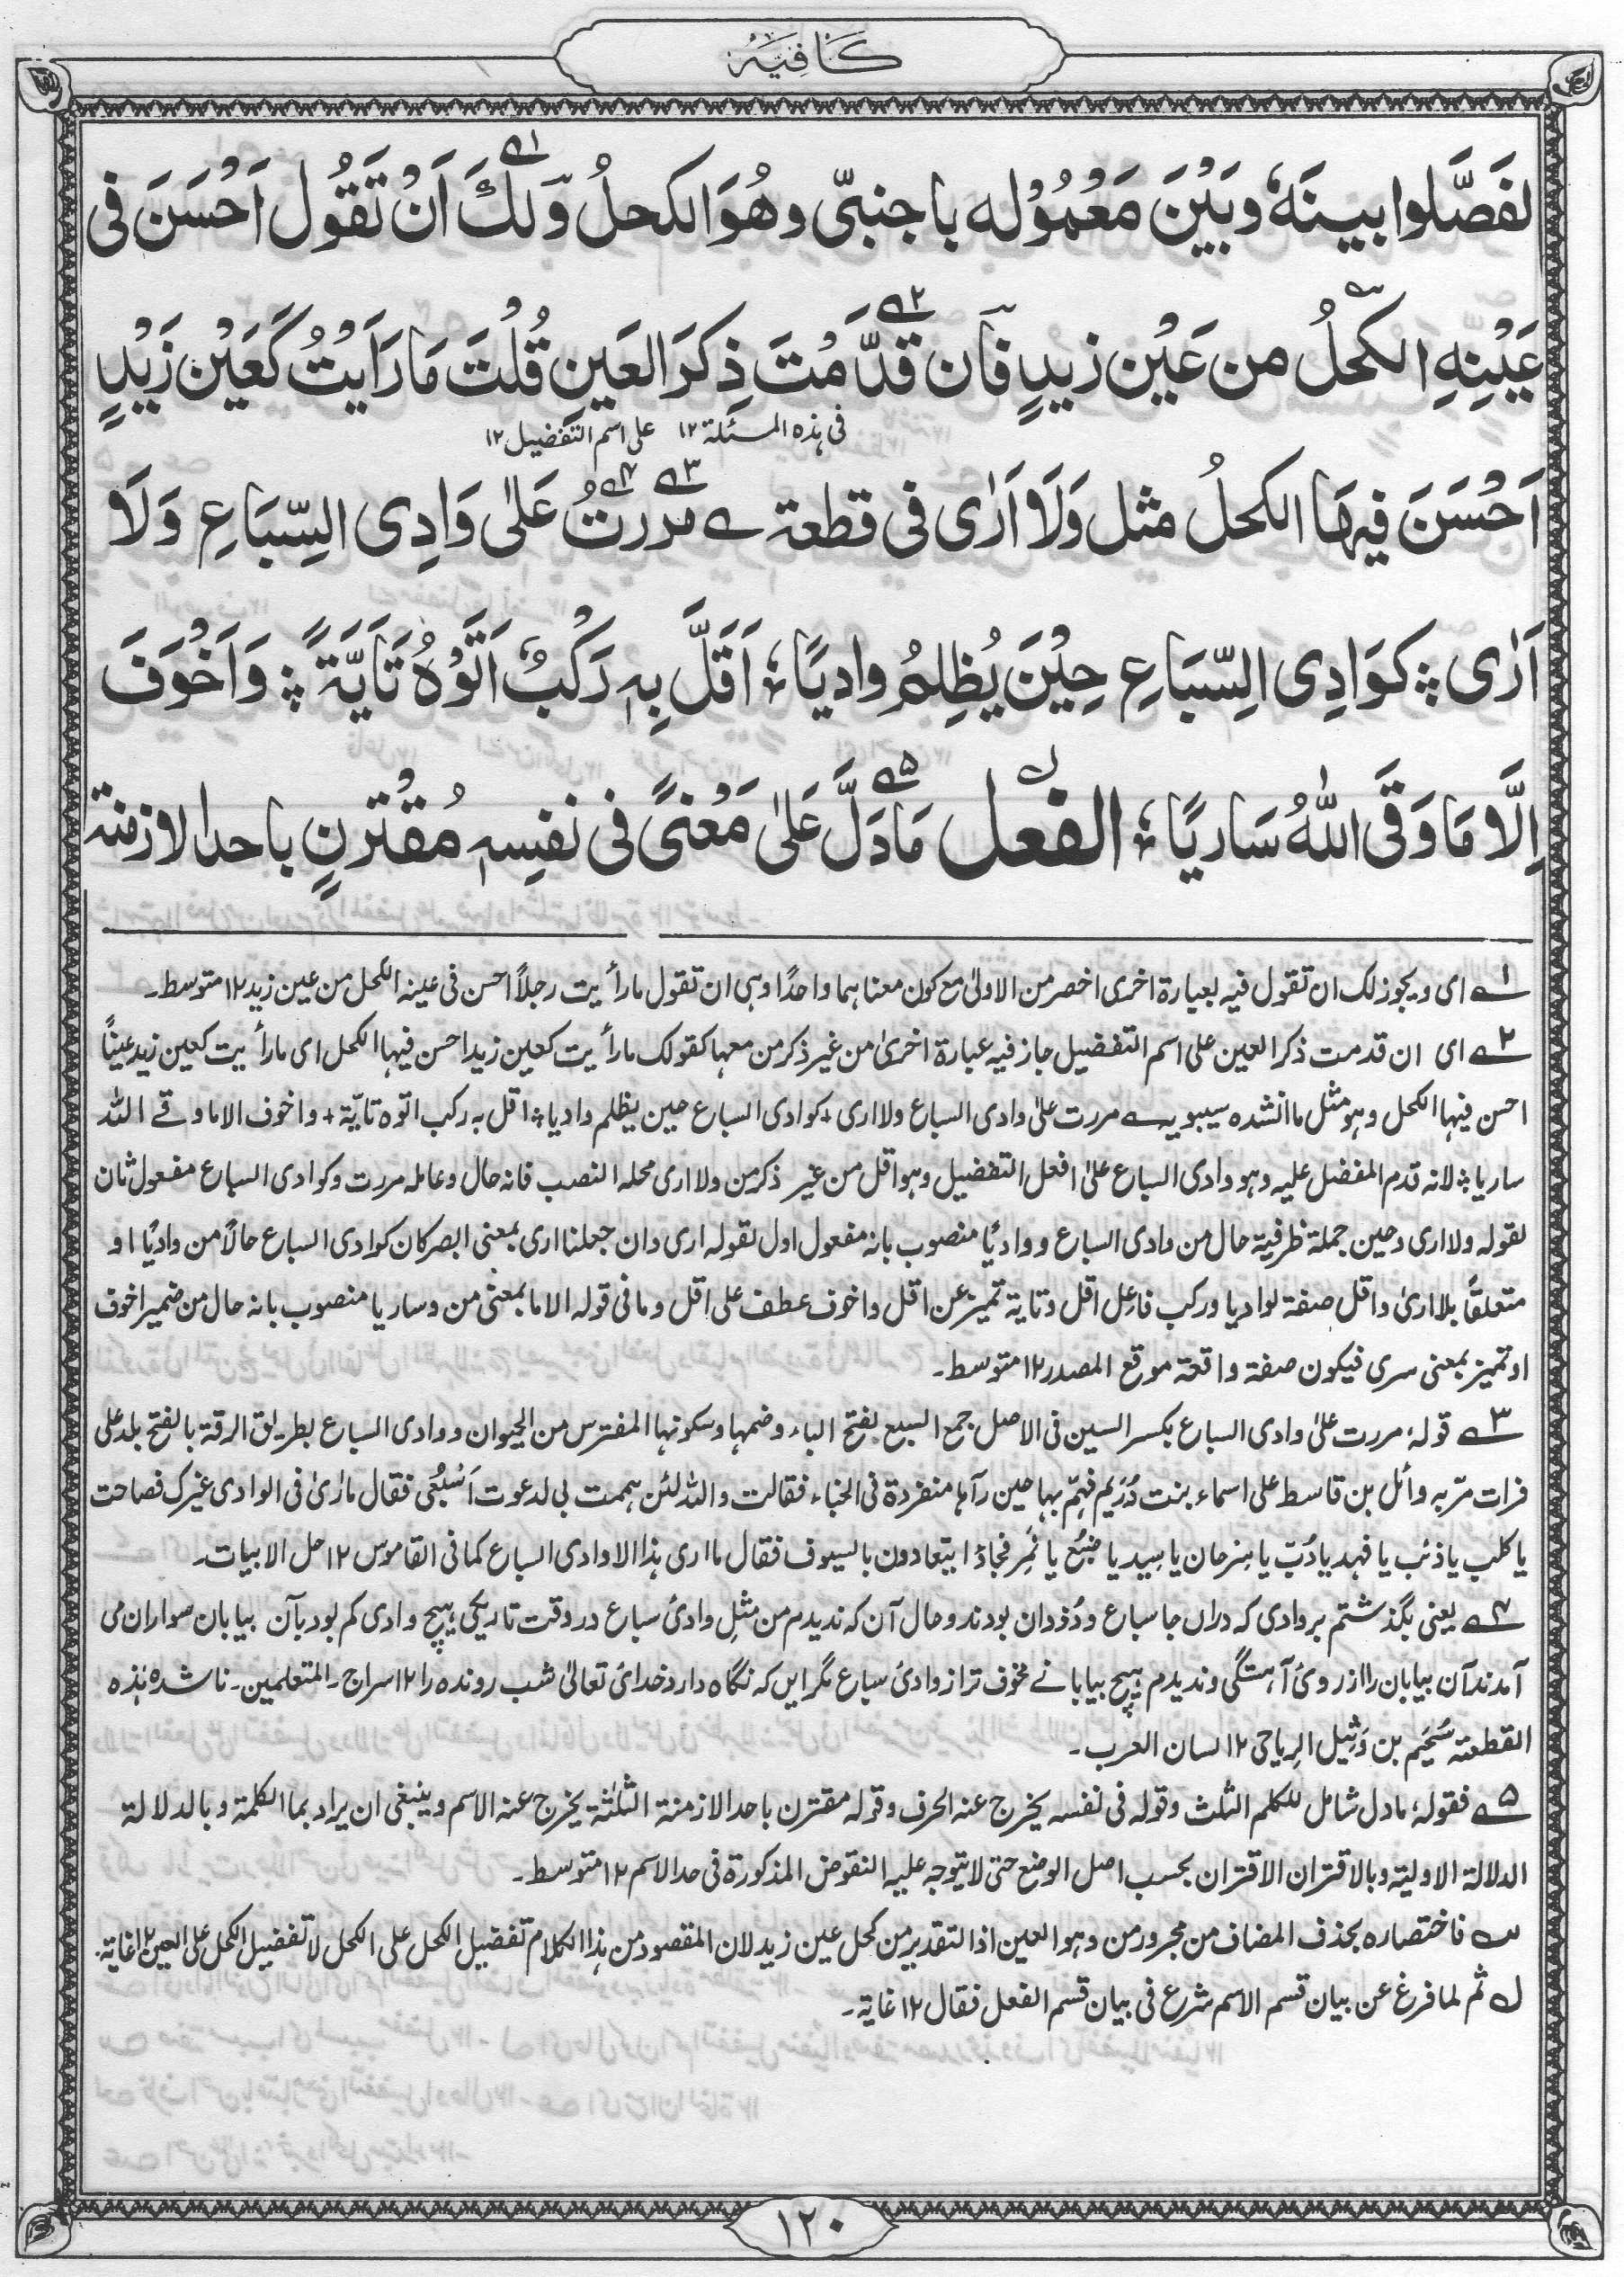 كَافِيَه
لفَصَّلوا بينَهٗ وبَيْنَ مَعْمُوْله باجنبیّ وهُوَ الكحلُ وَلكَ١ اَنْ تَقُول اَحْسَنَ فی
عَيْنِهِ الكحْلُ من عَيْن زيدٍ فَان٢ قدَّمْتَ ذِكرَ العَينِ قُلْتَ مَا رَاَيْتُ كَعَيْن زَيْدٍ
فی ہذہ المسئلة١٢ علی اسم التفضیل١٢
اَحْسَنَ فيهَا الكحلُ مثل وَلَا اَرٰى فی قطعة ؎٣ مررتُ٤ عَلىٰ وَادِی السِّبَاعِ وَلَا
اَرٰى ؞ كوَادِی السِّبَاعِ حِيْنَ يُظلِمُ واديًا ؞ اَقَلَّ بِهٖ رَكْبٌ اَتَوْهُ تَايَّةً ؞ وَاَخْوَفَ
اِلَّا مَا وَقَى اللهُ سَاريًا ؞ الفعل مَا٥ دَلَّ عَلىٰ مَعْنىً فی نفسِهٖ مُقْترنٍ باحد الازمنة
١؎ ای ویجوز لک ان تقول فیہ بعبارة اخری اخصر من الاولیٰ مع کون معناہما واحدًا وہی ان تقول مارأیت رجلًا احسن فی عینہ الکحل من عین زید١٢ متوسط۔
٢؎ ای ان قدمت ذکر العین علی اسم التفضیل جاز فیہ عبارة اخریٰ من غیر ذکر من معہا کقولک مارأیت کعین زید احسن فیہا الکحل ای مارأیت کعین زید عینًا
احسن فیہا الکحل وہو مثل ما انشدہ سیبویہ ؎ مررت علیٰ وادی السباع ولا اری + کوادی السباع حین یظلم وادیا ؞ اقل بہ رکب اتوہ تایّة + واخوف الا ما وقے اللہ
ساریا ؞ لانہ قدم المفضل علیہ وہو وادی السباع علیٰ افعل التفضیل وہو اقل من غیر ذکر من ولا اری محلہ النصب فانہ حال وعاملہ مررت وکوادی السباع مفعول ثان
لقولہ ولا اری وحین جملة ظرفیة حال من وادی السباع ووادیًا منصوب بانہ مفعول اول لقولہ اری وان جعلنا اری بمعنی البصر کان کوادی السباع حالًا من وادیًا او
متعلقًا بلا اریٰ واقل صفة لوادیا ورکب فاعل اقل وتایة تمیز عن اقل واخوف عطف علی اقل وما فی قولہ الا ما بمعنی من وساریا منصوب بانہ حال من ضمیر اخوف
او تمیز بمعنی سری فیکون صفة واقعة موقع المصدر١٢ متوسط۔
٣؎ قولہٗ مررت علیٰ وادی السباع بکسر السین فی الاصل جمع السبع بفتح الباء وضمہا وسکونہا المفترس من الحیوان ووادی السباع بطریق الرقة بالفتح بلد علی
فرات مرّ بہ وائل بن قاسط علی اسماء بنت دُرَیم فہمّ بہا حین رآہا منفردة فی الخباء فقالت واللہ لئن ہممت بی لدعوت اَسْبُعی فقال ما اریٰ فی الوادی غیرک فصاحت
یا کلب یا ذئب یا فہد یا دُبّ یا سِرحان یا سِید یا ضَبُع یا نَمِر فجاؤا یتعادون بالسیوف فقال ما اری ہذا الا وادی السباع کما فی القاموس ١٢ حل الابیات۔
٤؎ یعنی بگذشتم بر وادی کہ دراں جا سباع ودُزدان بودند وحال آن کہ ندیدم من مثلِ وادیٔ سباع در وقت تاریکی ہیچ وادی کم بود بآن بیابان سواران می
آمدند آن بیابان را از روئ آہستگی وندیدم ہیچ بیابانے مخوف تر از وادیٔ سباع مگر ایں کہ نگاہ دارد خدائ تعالیٰ شب روندہ را ١٢ سراج المتعلمین۔ ناشدہ ہٰذہ
القطعة سُحَیم بن وَثِیل الریاحی ١٢ لسان العرب۔
٥؎ فقولہٗ مادل شامل للکلم الثلٰث وقولہ فی نفسہ یخرج عنہ الحرف وقولہ مقترن باحد الازمنة الثلٰثة یخرج عنہ الاسم وینبغی ان یراد بما الکلمة وبالدلالة
الدلالة الاولیة وبالاقتران الاقتران بحسب اصل الوضع حتی لا یتوجہ علیہ النقوض المذکورة فی حد الاسم ١٢ متوسط۔
؎ فاختصارہ بحذف المضاف من مجرور من وہو العین اذ التقدیر من کحل عین زید لان المقصود من ہذا الکلام تفضیل الکحل علی الکحل لا تفضیل الکحل علی العین١٢ غایة۔
ل؎ ثم لما فرغ عن بیان قسم الاسم شرع فی بیان قسم الفعل فقال ١٢ غایة۔
١٢٠